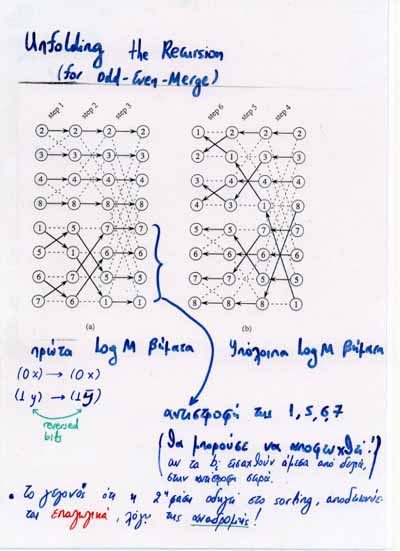 Unfolding the Recursion
(for Odd-Even-Merge)
step 1 step 2 step 3
step 6 step 5 step 4
2 2 2 2
3 3 3 3
4 4 4 4
8 8 8 8
1 5 7 7
5 1 6 6
6 7 5 5
7 6 1 1
1 1 2 2
2 2 3
3 4 4
4 3 1 8
5 5 7 7
6 6
7 7 5 5
8 8 8 1
(a) (b)
πρώτα log M βήματα
Υπόλοιπα log M βήματα
(0 x) → (0 x)
(1 y) → (1 ȳ)
reversed
bits
αντιστροφή της 1, 5, 6, 7
(θα μπορούσε να αποφευχθεί!
αν τα bᵢ εισαχθούν άμεσα από δεξιά,
στην αντίστροφη σειρά.
• Το γεγονός ότι η 2η φάση οδηγεί στο sorting, αποδεικνύε-
ται επαγωγικά, λόγω της αναδρομής!